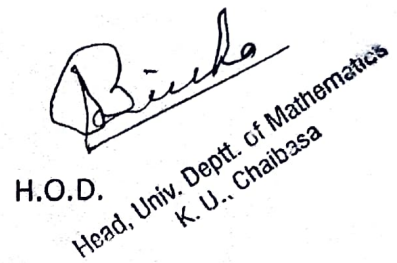 H.O.D.
Head, Univ. Deptt. of Mathematics
K. U., Chaibasa